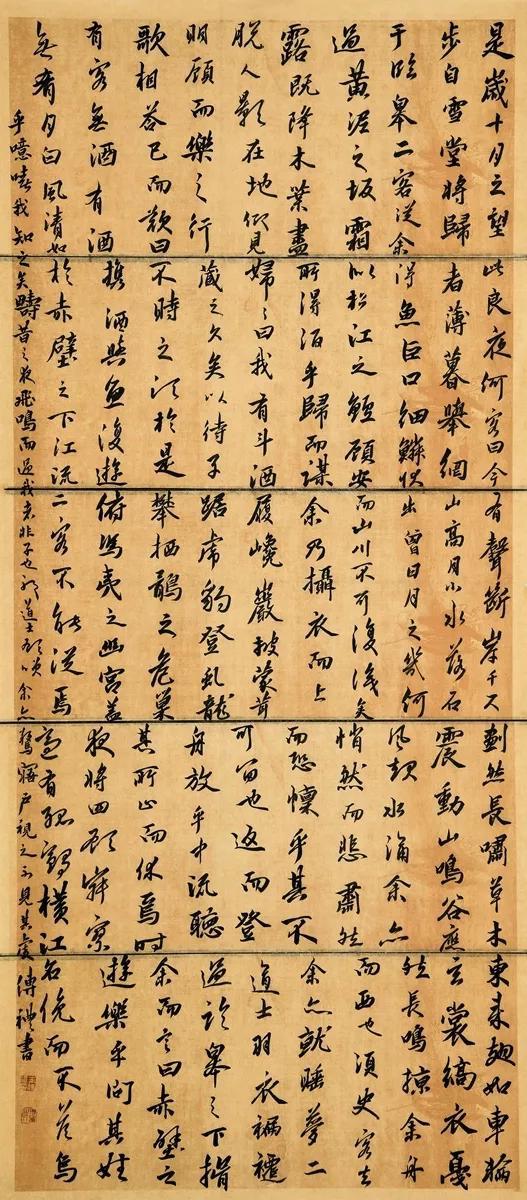 是歲十月之望
步自雪堂將歸
于臨皋二客從余
過黃泥之坂霜
露既降木葉盡
脫人影在地仰見
明顧而樂之行
歌相答已而歎曰
有客無酒有酒
無肴月白風清如
此良夜何客曰今
者薄暮舉網
得魚巨口細鱗狀
似松江之鱸顧安
所得酒乎歸而謀
婦婦曰我有斗酒
藏之久矣以待子
不時之須於是
攜酒與魚復遊
於赤壁之下江流
有聲斷岸千尺
山高月小水落石
出曾日月之幾何
而山川不可復識矣
余乃攝衣而上
履巉巖披蒙茸
踞虎豹登虬龍
攀栖鶻之危巢
俯馮夷之幽宮蓋
二客不能從焉
劃然長嘯草木
震動山鳴谷應
風起水涌余亦
悄然而悲肅然
而恐懍乎其不
可留也返而登
舟放乎中流聽
其所止而休焉時
夜將四顧寂寥
適有孤鶴橫江
東來翅如車輪
玄裳縞衣戛
然長鳴掠余舟
而西也須臾客去
余亦就睡夢二
道士羽衣褊褼
過臨皋之下揖
余而言曰赤壁之
遊樂乎問其姓
名俛而不答烏
乎噫嘻我知之矣疇昔之夜飛鳴而過我者非子也耶道士顧笑余亦驚寤戶視之不見其處傅禮書